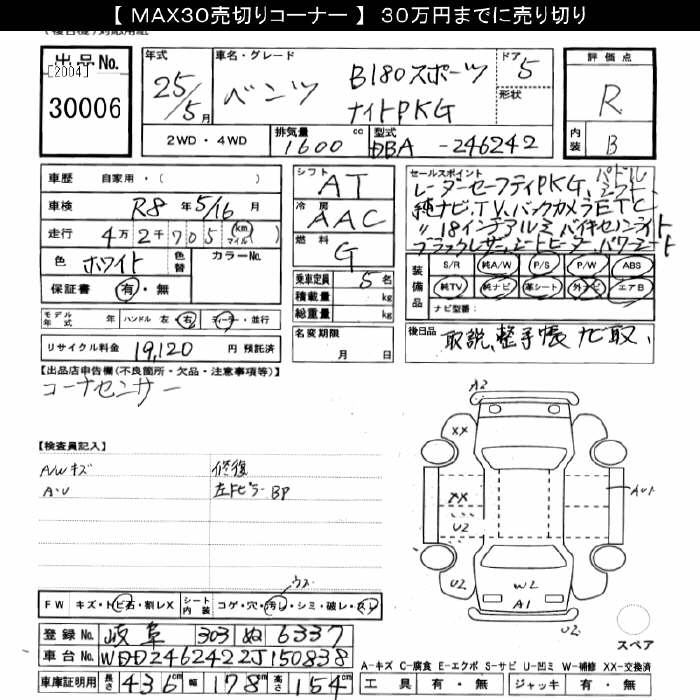 【 MAX30売切りコーナー 】 30万円までに売り切り
出品No.
[2004]
30006
年式
25/5月
車名・グレード
ベンツ B180スポーツ
ナイトPKG
ドア
5
形状
評価点
R
内装
B
2WD・4WD
排気量
1600 cc
型式
DBA -246242
車歴 自家用・( )
車検 R8年5/16月
走行 4万2千705 km マイル
色 ホワイト 色替 カラーNo.
保証書 有・無
シフト
AT
冷房
AAC
燃料
G
乗車定員 5名
積載量 kg
総重量 kg
名変期限
月 日
セールスポイント パドル
レーダーセーフティPKG、シフト
純ナビ,TV、バックカメラETC
〃18インチアルミ バイキセノンライト
ブラックレザーシートヒーター、パワーシート
装備品
S/R 純A/W P/S P/W ABS
純TV 純ナビ 革シート 外ナビ エアB
ナビ型番:
モデル年式 年 ハンドル 左・右 ディーラー・並行
リサイクル料金 19,120 円 預託済
後日品 取説、整手帳 ナビ取、
【出品店申告欄(不良箇所・欠品・注意事項等)】
コーナセンサー
【検査員記入】
A/Wキズ 修復
A・U 左Fピラー BP
A2
XX
XX
U2
AU1
U2
W2
A1
U2
U2
スペア
ウス
FW キズ・トビ石・割レX シート内装 コゲ・穴・汚レ・シミ・破レ・スレ
登録No. 岐阜 303 ぬ 6337
車台No. WDD2462422J150838
車庫証明用 長さ 436cm 幅 178cm 高さ 154cm
A-キズ C-腐食 E-エクボ S-サビ U-凹ミ W-補修 XX-交換済
工具 有・無 ジャッキ 有・無